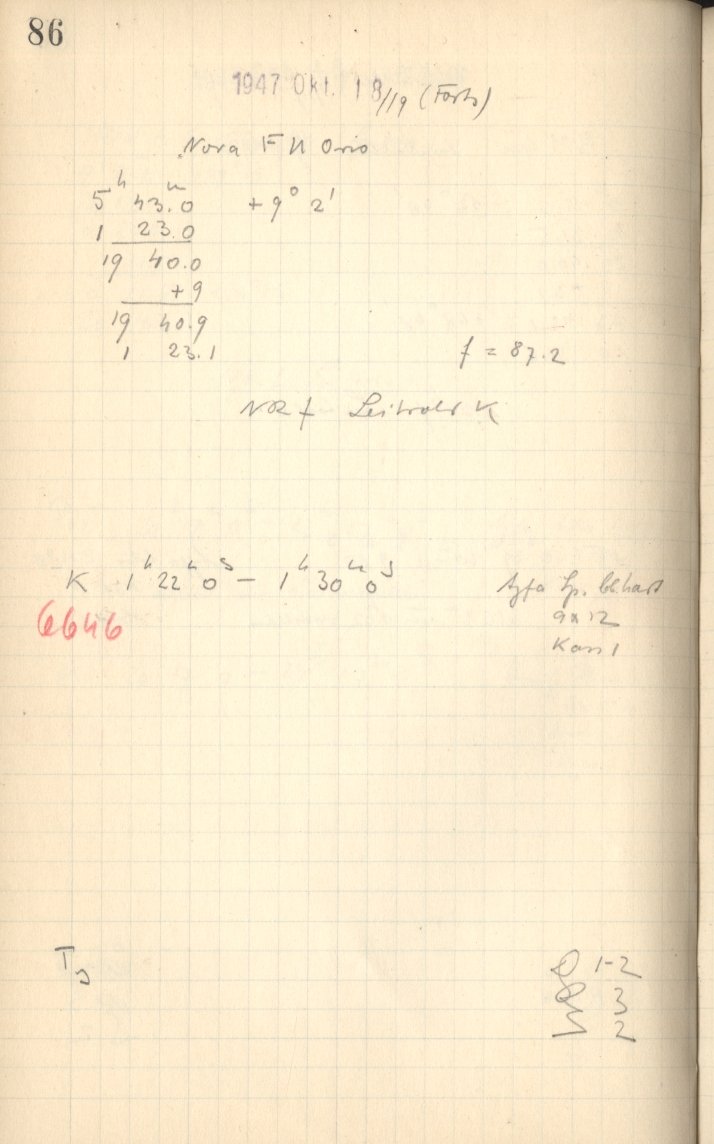 86
1947 Okt. 18/19 (Forts)
Nova FU Orio
5ʰ 43.ᵐ0 +9° 2'
1 23.0
19 40.0
+9
19 40.9
1 23.1
f = 87.2
NR f Leitrohr K
K 1ʰ 22ᵐ 0ˢ – 1ʰ 30ᵐ 0ˢ
Agfa Sp. bl. hart
6646
9x12
Kass 1
T
1-2
3
2